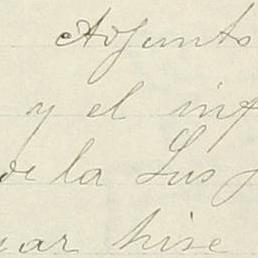 Adjunto
y el inf
de la Lus
ar hise